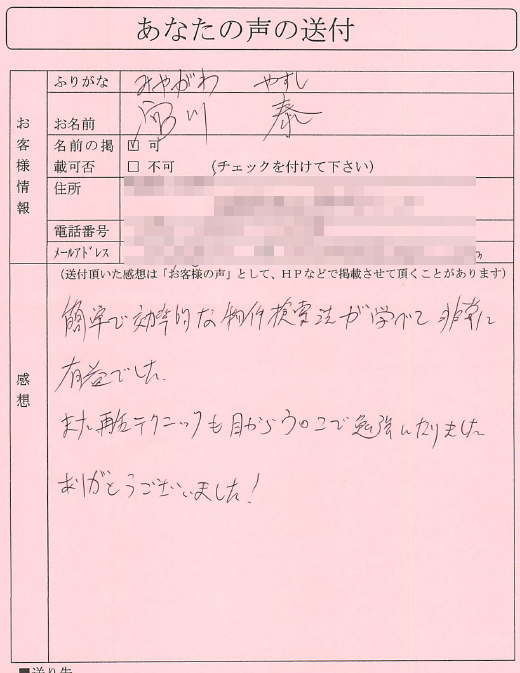 あなたの声の送付
ふりがな みやがわ やすし
お名前 宮川 泰
お客様情報
名前の掲載可否
☑ 可
☐ 不可 (チェックを付けて下さい)
住所
電話番号
メールアドレス
感想
(送付頂いた感想は「お客様の声」として、HPなどで掲載させて頂くことがあります)
簡単で効率的な物件検索法が学べて非常に
有益でした。
また、再生テクニックも目からウロコで勉強になりました
ありがとうございました!
■送り先